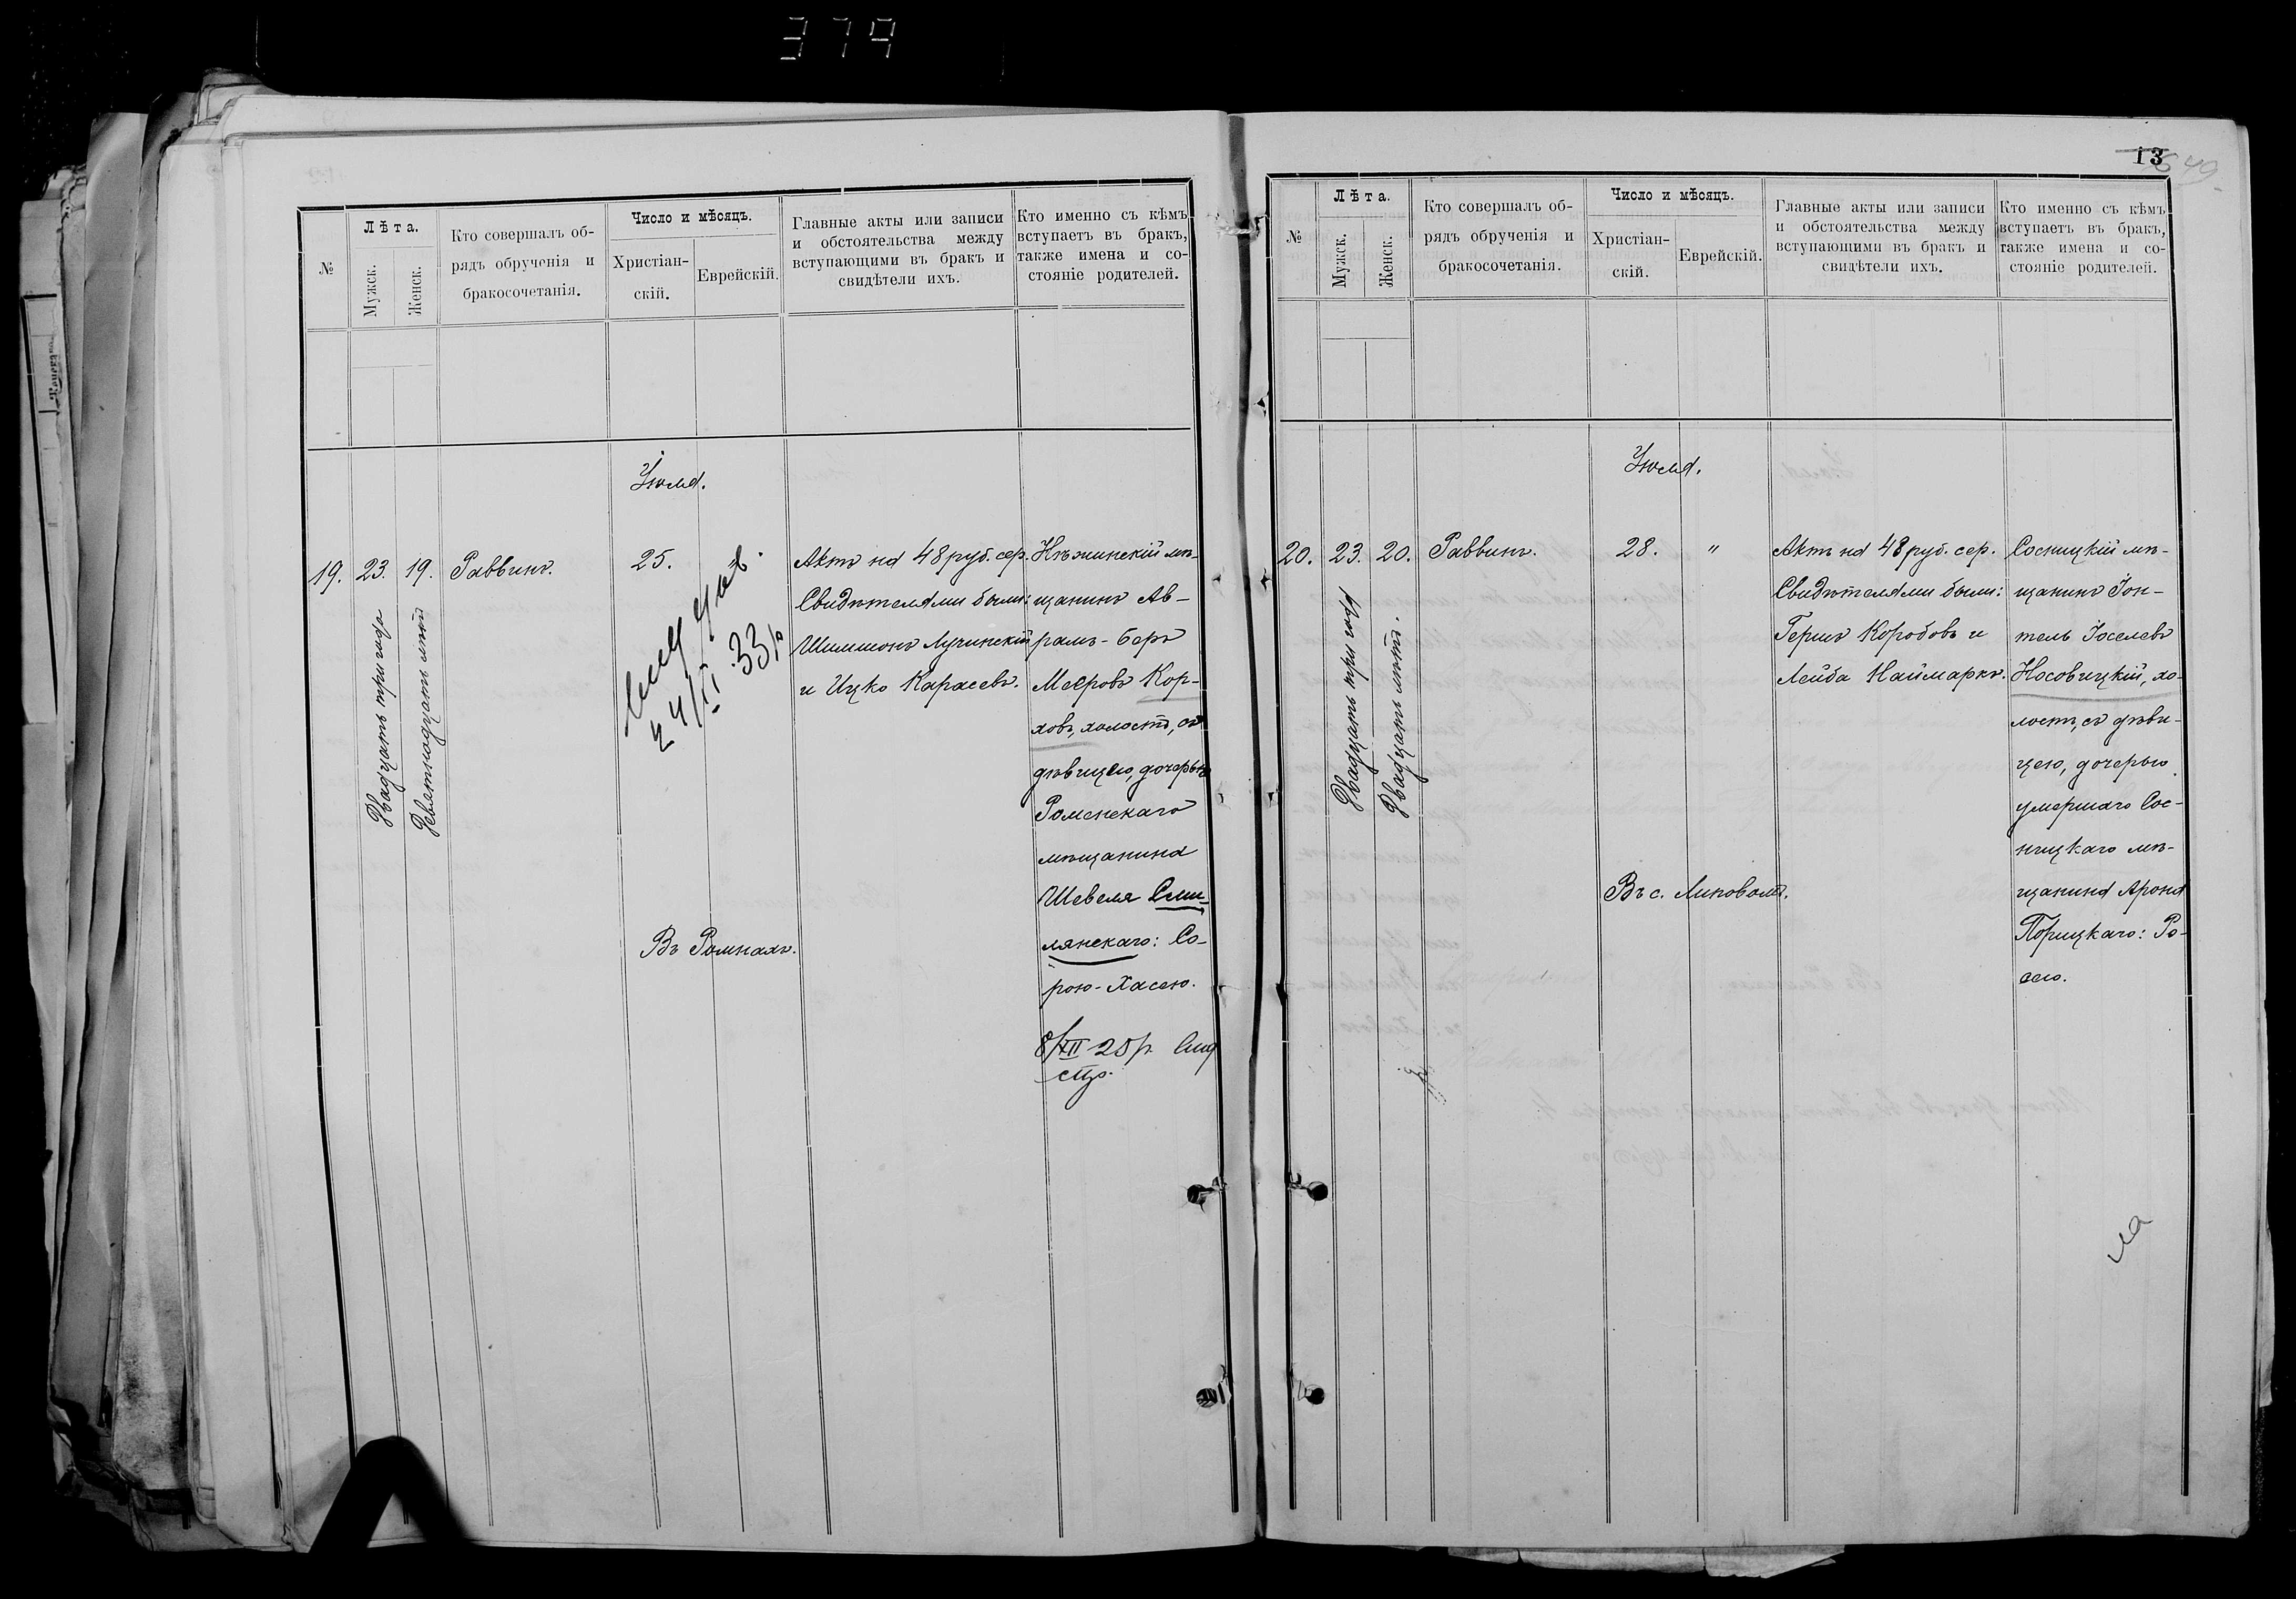 379
№
Лѣта.
Мужск.
Женск.
Кто совершалъ об-
рядъ обрученія и
бракосочетанія.
Число и мѣсяцъ.
Христіан-
скій.
Еврейскій.
Главные акты или записи
и обстоятельства между
вступающими въ бракъ и
свидѣтели ихъ.
Кто именно съ кѣмъ
вступаетъ въ бракъ,
также имена и со-
стояніе родителей.
Іюля.
19.
23.
Двадцать три года
19.
Девятнадцать лѣтъ
Раввинъ.
25.
24/II 33 р
Въ Ромнахъ.
Актъ на 48 руб. сер.
Свидѣтелями были:
Шимшонъ Лучинскій
и Ицко Карасевъ.
Нѣжинскій мѣ-
щанинъ Ав-
рамъ-Беръ
Мееровъ Кор-
ховъ, холостъ, съ
дѣвицею, дочерью
Роменскаго
мѣщанина
Шевеля Сми-
лянскаго: Со-
рою-Хасею.
8/XII 25 р.
13
49
№
Лѣта.
Мужск.
Женск.
Кто совершалъ об-
рядъ обрученія и
бракосочетанія.
Число и мѣсяцъ.
Христіан-
скій.
Еврейскій.
Главные акты или записи
и обстоятельства между
вступающими въ бракъ и
свидѣтели ихъ.
Кто именно съ кѣмъ
вступаетъ въ бракъ,
также имена и со-
стояніе родителей.
Іюля.
20.
23.
Двадцать три года
20.
Двадцать лѣтъ.
Раввинъ.
28.
"
Въ с. Липовомъ.
Актъ на 48 руб. сер.
Свидѣтелями были:
Гершъ Коробовъ и
Лейба Наймаркъ.
Сосницкій мѣ-
щанинъ Іон-
тель Іоселевъ
Носовицкій, хо-
лостъ, съ дѣви-
цею, дочерью
умершаго Сос-
ницкаго мѣ-
щанина Арона
Порицкаго: Ро-
сею.